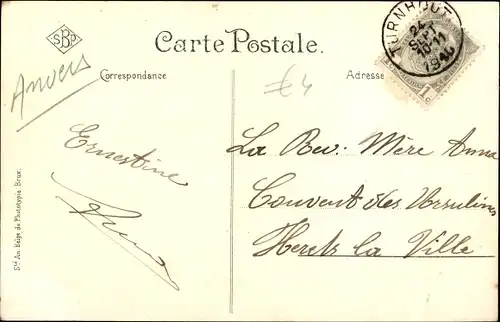 SBP
Carte Postale.
Correspondance
Adresse
TURNHOUT
SEPT
10-11
1c
Anvers
£4
Ernestine
La Rev. Mère Anna
Couvent des Ursulines
Herets la Ville
Sté An. Belge de Phototypie Brux.